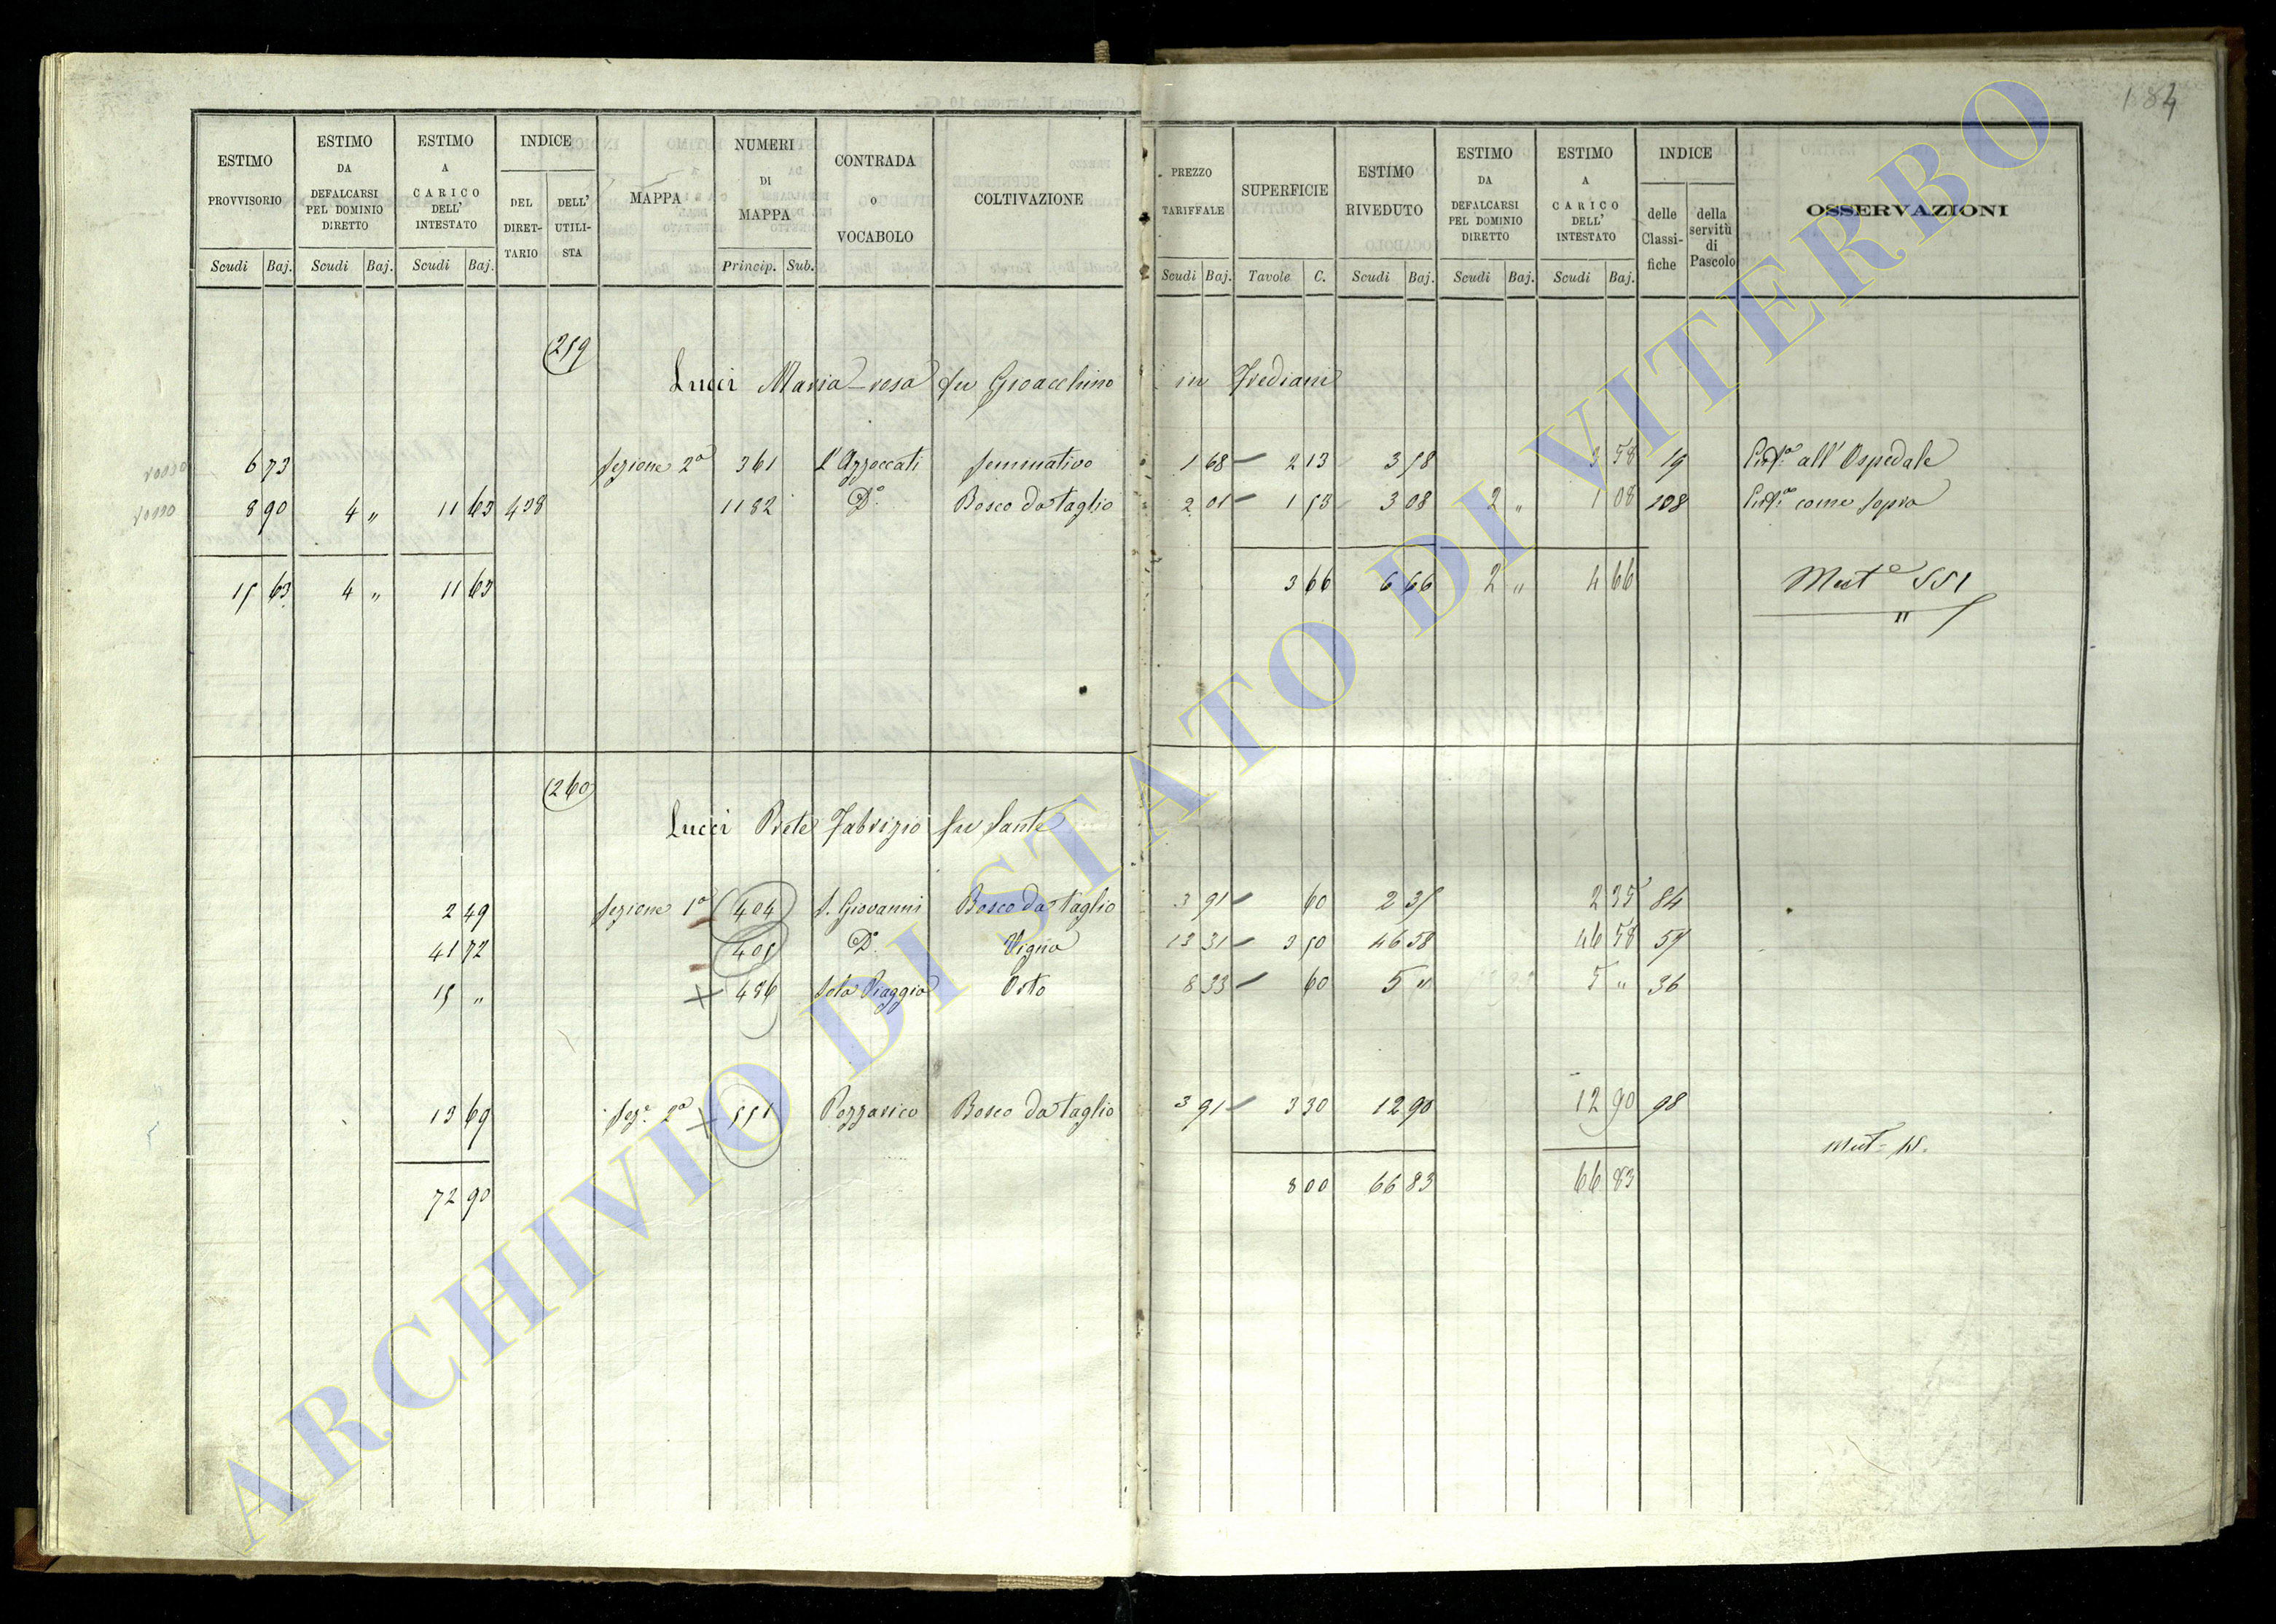 184
ESTIMO PROVVISORIO Scudi Baj.
ESTIMO DA DEFALCARSI PEL DOMINIO DIRETTO Scudi Baj.
ESTIMO A CARICO DELL' INTESTATO Scudi Baj.
INDICE DEL DIRET-TARIO DELL' UTILI-STA
MAPPA
NUMERI DI MAPPA Princip. Sub.
CONTRADA o VOCABOLO
COLTIVAZIONE
PREZZO TARIFFALE Scudi Baj.
SUPERFICIE Tavole C.
ESTIMO RIVEDUTO Scudi Baj.
ESTIMO DA DEFALCARSI PEL DOMINIO DIRETTO Scudi Baj.
ESTIMO A CARICO DELL' INTESTATO Scudi Baj.
INDICE delle Classi-fiche della servitù di Pascolo
OSSERVAZIONI
259
Lucci Maria rosa fu Gioacchino in Frediani
6 73 Sezione 2a 361 L'Azzoccati Seminativo 1 68 2 13 3 58 3 58 19 all'Ospedale
8 90 4 " 11 63 438 1182 Do. Bosco da taglio 2 01 1 53 3 08 2 " 1 08 108 come sopra
15 63 4 " 11 63 3 66 6 66 2 " 4 66 551
"
260
Lucci Prete Fabrizio fu Sante
2 49 Sezione 1a 404 S. Giovanni Bosco da taglio 3 91 60 2 35 2 35 84
41 72 405 Do. Vigna 13 31 3 50 46 58 46 58 57
15 " 486 Piaggia Orto 8 33 60 5 " 5 " 36
13 69 Seze. 2a 551 Pozzarico Bosco da taglio 3 91 3 30 12 90 12 90 98
Mut=
72 90 8 00 66 83 66 83
ARCHIVIO DI STATO DI VITERBO